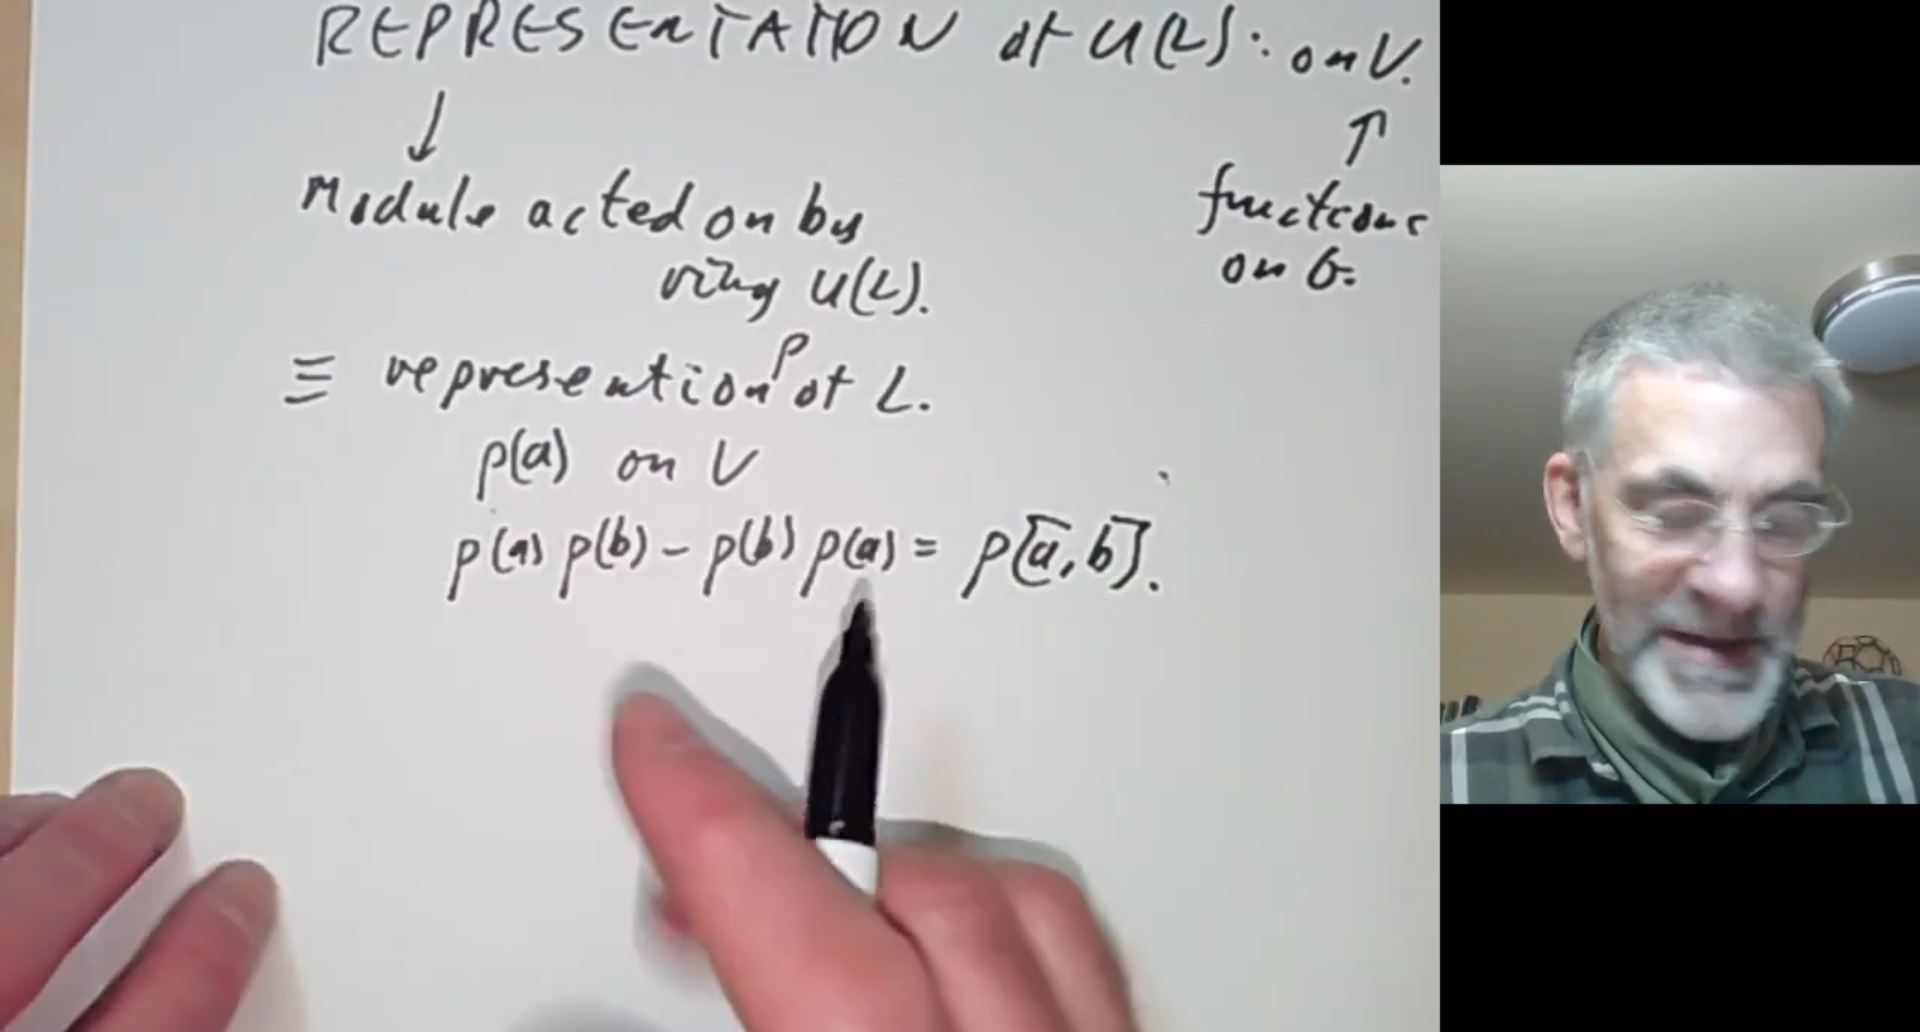 REPRESENTATION of U(L): on V.
↓
Module acted on by
ring U(L).
↑
functions
on G.
≡ represention ρ of L.
ρ(a) on V
ρ(a) ρ(b) - ρ(b) ρ(a) = ρ[a,b].